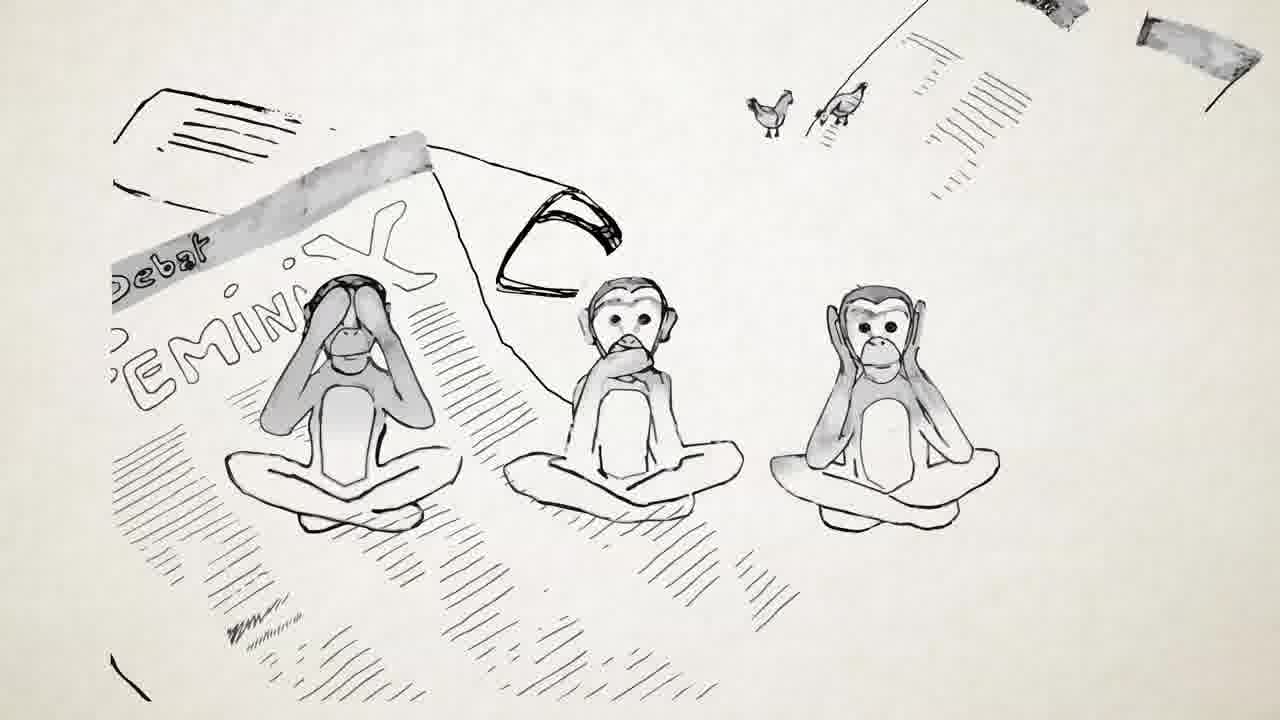 Debat
FEMINIX